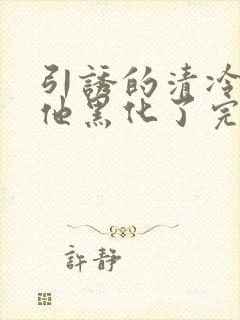 引誘的清冷
他黑化了完
許靜